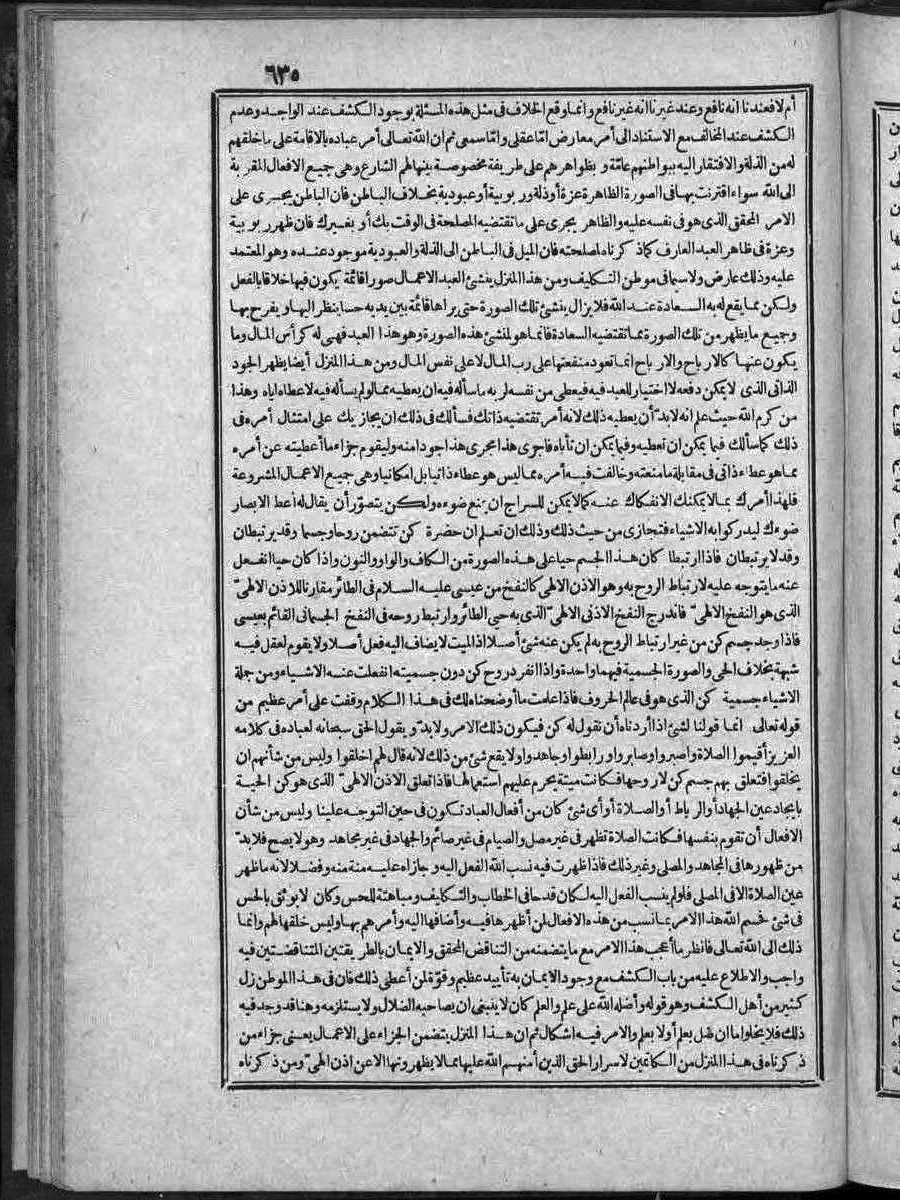 ٦٣٥
أم لا فعندنا انه نافع وعند غيرنا أنه غير نافع وانما وقع الخلاف في مثل هذه المسئلة بوجود الكشف عند الواجد وعدم
الكشف عند المخالف مع الاستناد الى أمر معارض امّا عقلى وامّا سمعى ثم ان الله تعالى أمر عباده بالاقامة على ما خلقهم
له من الذلة والافتقار اليه ببواطنهم عامّة و بظواهرهم على طريقة مخصوصة بينها لهم الشارع وهى جميع الافعال المقربة
الى الله سواء اقترنت بها فى الصورة الظاهرة عزة أو ذلة وربوبية أو عبودية بخلاف الباطن فان الباطن يجرى على
الامر المحقق الذى هو فى نفسه عليه والظاهر يجرى على ما تقتضيه المصلحة فى الوقت بك أو بغيرك فان ظهر ربوبية
وعزة فى ظاهر العبد العارف كما ذكرناه لمصلحته فان الميل فى الباطن الى الذلة والعبودية موجود عنده وهو المعتمد
عليه وذلك عارض ولاسيما فى موطن التكليف ومن هذا المنزل ينشئ العبد الاعمال صورا قائمة يكون فيها خلاقا بالفعل
ولكن مما يقع له به السعادة عند الله فلا يزال ينشئ تلك الصورة حتى يراها قائمة بين يديه حسا ينظر اليها ويفرح بها
وجميع ما يظهر من تلك الصورة مما تقتضيه السعادة فانما هو لمنشئ هذه الصورة وهو هذا العبد فهى له كرأس المال وما
يكون عنها كالارباح والارباح انما تعود منفعتها على رب المال لا على نفس المال ومن هذا المنزل أيضا يظهر الجود
الذاتى الذى لا يمكن دفعه لا اختيار للعبد فيه فيعطى من نفسه لربه ما سأله فيه ان يعطيه مما لو لم يسأله فيه لاعطاه اياه وهذا
من كرم الله حيث علم انه لابدّ أن يعطيه ذلك لانه أمر تقتضيه ذاتك فسألك فى ذلك ان يجازيك على امتثال أمره فى
ذلك كما سألك فيما يمكن ان تعطيه وفيما يمكن ان تأباه فاجرى هذا مجرى هذا جودا منه وليقوم جزاء ما أعطيته عن أمره
مما هو عطاء ذاتى فى مقابلة ما منعته وخالفت فيه أمره مما ليس هو عطاء ذاتيا بل امكانيا وهى جميع الاعمال المشروعة
فلهذا أمرك بما لا يمكنك الانفكاك عنه كما لا يمكن للسراج ان يمنع ضوءه ولكن يتصوّر أن يقال له أعط الابصار
ضوءك ليدركوا به الاشياء فتجازى من حيث ذلك وذلك ان تعلم ان حضرة كن تتضمن روحا وجسما وقد يرتبطان
وقد لا يرتبطان فاذا ارتبطا كان هذا الجسم حيا على هذه الصورة من الكاف والواو والنون واذا كان حيا انفعل
عنه ما يتوجه عليه لارتباط الروح به وهو الاذن الالهى كالنفخ من عيسى عليه السلام فى الطائر مقارنا للاذن الالهىّ
الذى هو النفخ الالهىّ فاندرج النفخ الاذنى الالهىّ الذى به حيى الطائر وارتبط روحه فى النفخ الجسمانى القائم بعيسى
فاذا وجد جسم كن من غير ارتباط الروح به لم يكن عنه شئ أصلا اذ الميت لا يضاف اليه فعل أصلا ولا يقوم لعقل فيه
شبهة بخلاف الحى والصورة الجسمية فيهما واحدة واذا انفرد روح كن دون جسميته انفعلت عنه الاشياء ومن جملة
الاشياء جسمية كن الذى هو فى عالم الحروف فاذا علمت ما أوضحناه لك فى هذا الكلام وقفت على أمر عظيم من
قوله تعالى انما قولنا لشئ اذا أردناه أن نقول له كن فيكون ذلك الامر ولابدّ ويقول الحق سبحانه لعباده فى كلامه
العزيز أقيموا الصلاة واصبروا وصابروا ورابطوا وجاهدوا ولا يقع شئ من ذلك لانه قال لهم اخلقوا وليس من شأنهم ان
يخلقوا فتعلق بهم جسم كن لا روحها فكانت ميتة يحرم عليهم استعمالها فاذا تعلق الاذن الالهىّ الذى هو كن الحية
بايجاد عين الجهاد أو الرباط أو الصلاة أو أى شئ كان من أفعال العباد تكون فى حين التوجه علينا وليس من شأن
الافعال أن تقوم بنفسها فكانت الصلاة تظهر فى غير مصل والصيام فى غير صائم والجهاد فى غير مجاهد وهو لا يصح فلابدّ
من ظهورها فى المجاهد والمصلى وغير ذلك فاذا ظهرت فيه نسب الله الفعل اليه وجازاه عليه منة منه وفضلا لانه ما ظهر
عين الصلاة الا فى المصلى فلو لم ينسب الفعل اليه لكان قدحا فى الخطاب والتكليف ومباهتة للحس وكان لا يوثق بالحس
فى شئ فحسم الله هذا الامر بما نسب من هذه الافعال لمن أظهرها فيه وأضافها اليه وأمرهم بها وليس خلقها لهم وانما
ذلك الى الله تعالى فانظر ما أعجب هذا الامر مع ما يتضمنه من التناقض المحقق والايمان بالطريقتين المتناقضتين فيه
واجب والاطلاع عليه من باب الكشف مع وجود الايمان به تأييد عظيم وقوّة لمن أعطى ذلك فان فى هذا الموطن زل
كثير من أهل الكشف وهو قوله وأضله الله على علم والعلم كان لا ينبغى ان صاحبه الضلال ولا يستلزمه وهنا قد وجد فيه
ذلك فلا يخلو اما ان ضل بعلم أو لا بعلم والامر فيه اشكال ثم ان هذا المنزل يتضمن الجزاء على الاعمال يعنى جزاء من
ذكرناه فى هذا المنزل من الكاتمين لاسرار الحق الذين أمنهم الله عليها مما لا يظهرونها الا عن اذن الهىّ ومن ذكرناه